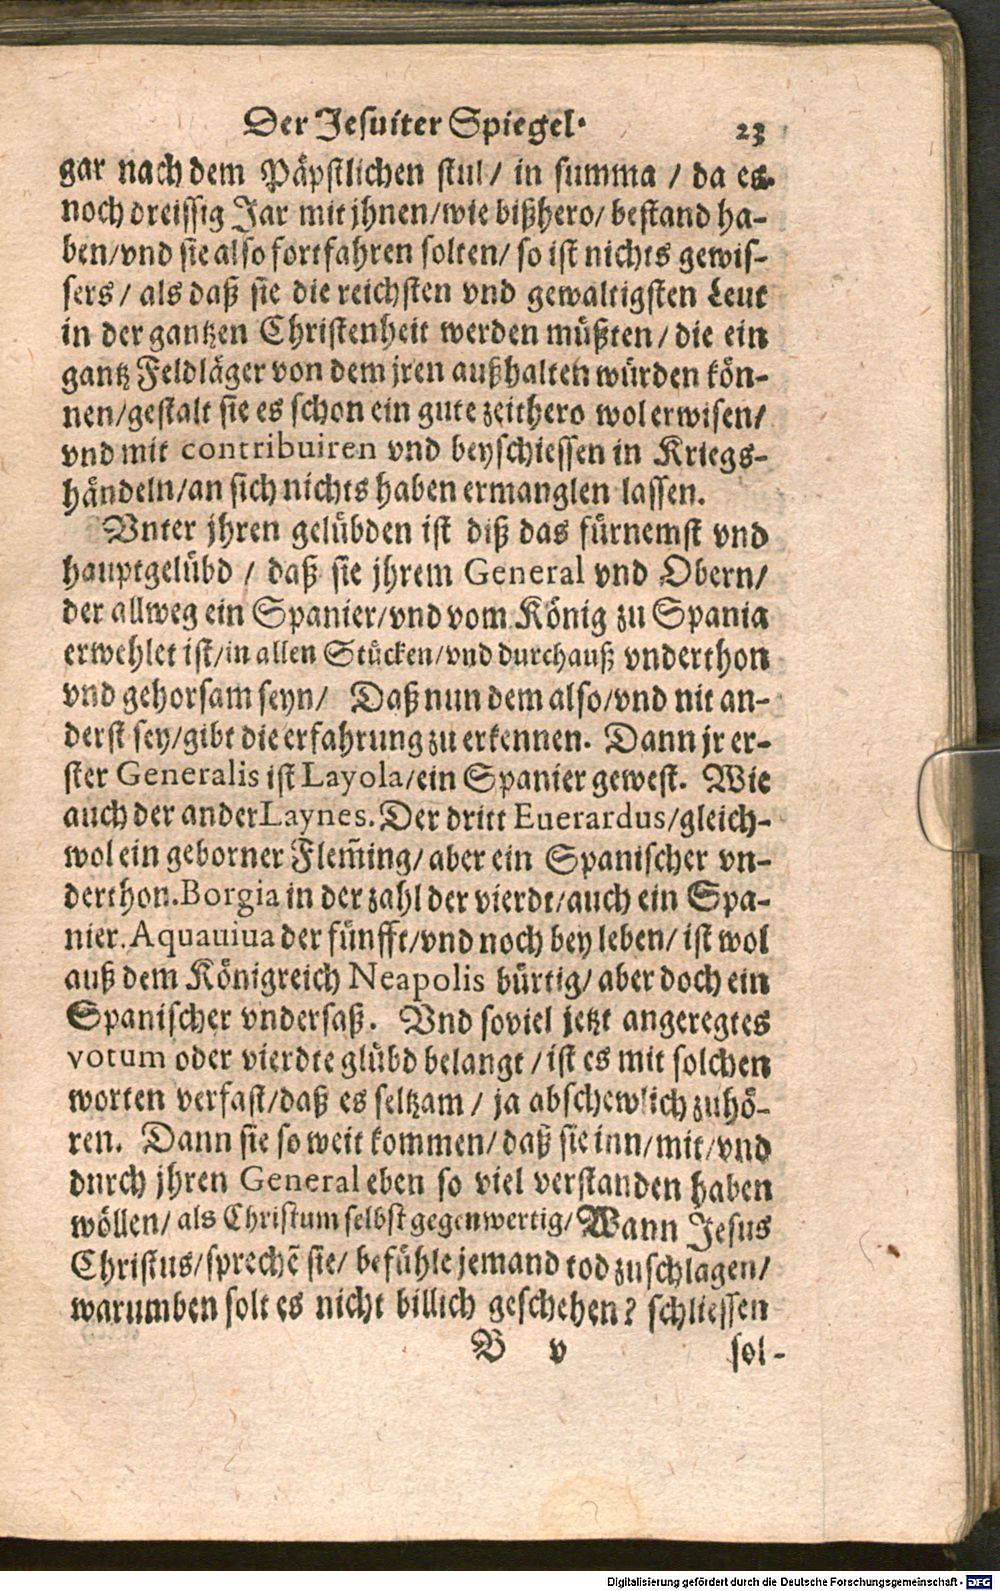 Der Jesuiter Spiegel. 23
gar nach dem Päpstlichen stul / in summa / da es
noch dreissig Jar mit jhnen / wie bißhero / bestand ha-
ben / vnd sie also fortfahren solten / so ist nichts gewis-
sers / als daß sie die reichsten vnd gewaltigsten Leut
in der gantzen Christenheit werden müßten / die ein
gantz Feldläger von dem jren außhalten würden kön-
nen / gestalt sie es schon ein gute zeithero wol erwisen /
vnd mit contribuiren vnd beyschiessen in Kriegs-
händeln / an sich nichts haben ermanglen lassen.
Vnter jhren gelübden ist diß das fürnemst vnd
hauptgelübd / daß sie jhrem General vnd Obern /
der allweg ein Spanier / vnd vom König zu Spania
erwehlet ist / in allen Stücken / vnd durchauß vnderthon
vnd gehorsam seyn / Daß nun dem also / vnd nit an-
derst sey / gibt die erfahrung zu erkennen. Dann jr er-
ster Generalis ist Layola / ein Spanier gewest. Wie
auch der ander Laynes. Der dritt Euerardus / gleich-
wol ein geborner Flem̃ing / aber ein Spanischer vn-
derthon. Borgia in der zahl der vierdt / auch ein Spa-
nier. Aquauiua der fünfft / vnd noch bey leben / ist wol
auß dem Königreich Neapolis bürtig / aber doch ein
Spanischer vndersaß. Vnd soviel jetzt angeregtes
votum oder vierdte glübd belangt / ist es mit solchen
worten verfast / daß es seltzam / ja abschewlich zuhö-
ren. Dann sie so weit kommen / daß sie inn / mit / vnd
durch jhren General eben so viel verstanden haben
wöllen / als Christum selbst gegenwertig / Wann Jesus
Christus / sprechẽ sie / befühle jemand tod zuschlagen /
warumben solt es nicht billich geschehen? schliessen
B v sol-
Digitalisierung gefördert durch die Deutsche Forschungsgemeinschaft - DFG